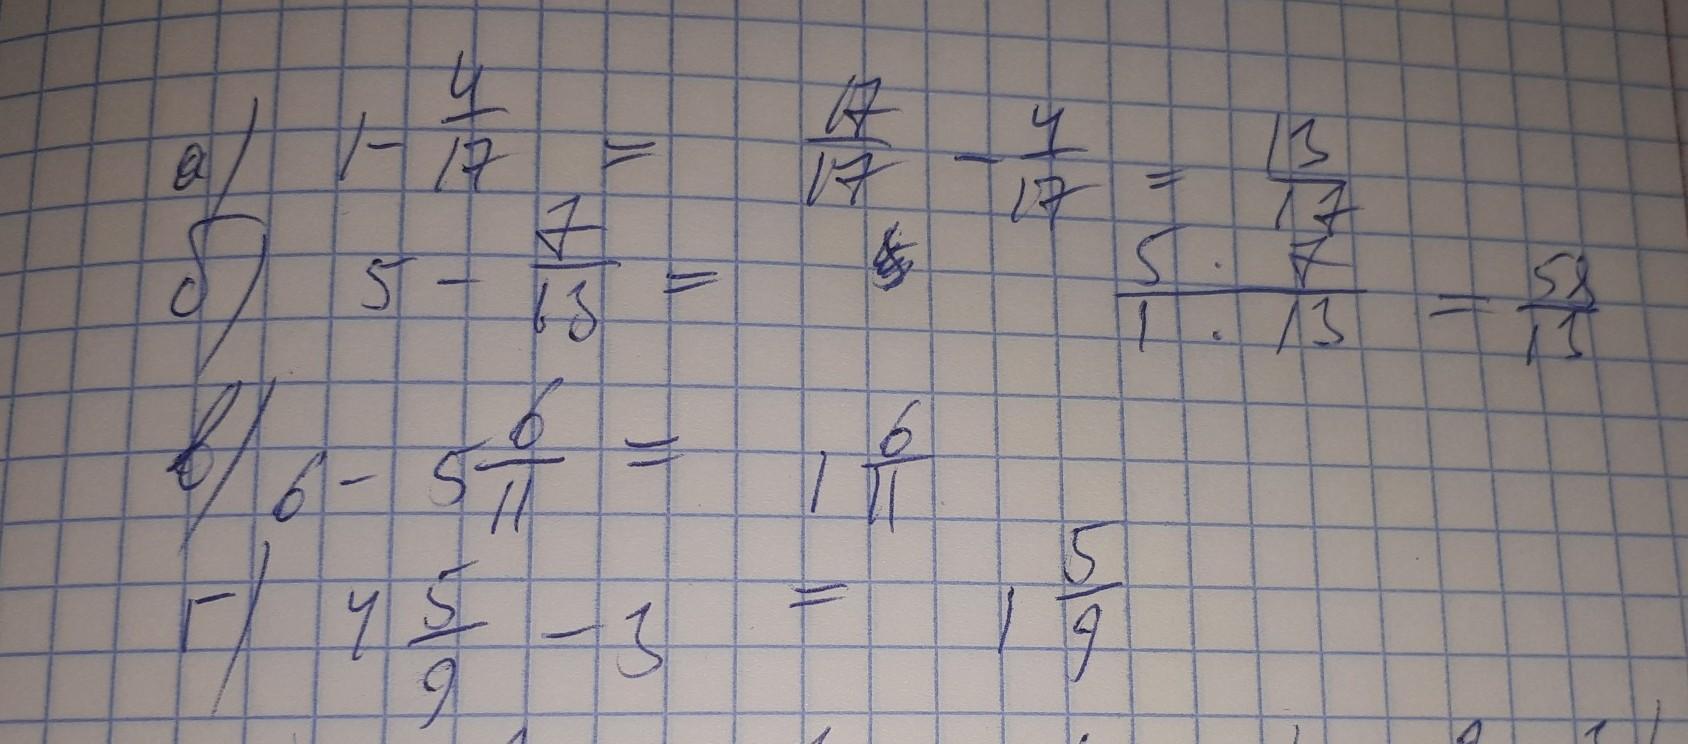 а) 1 - 4/17 = 17/17 - 4/17 = 13/17
б) 5 - 7/13 = 5 · 7 / 1 · 13 = 58/13
в) 6 - 5 6/11 = 1 6/11
г) 4 5/9 - 3 = 1 5/9